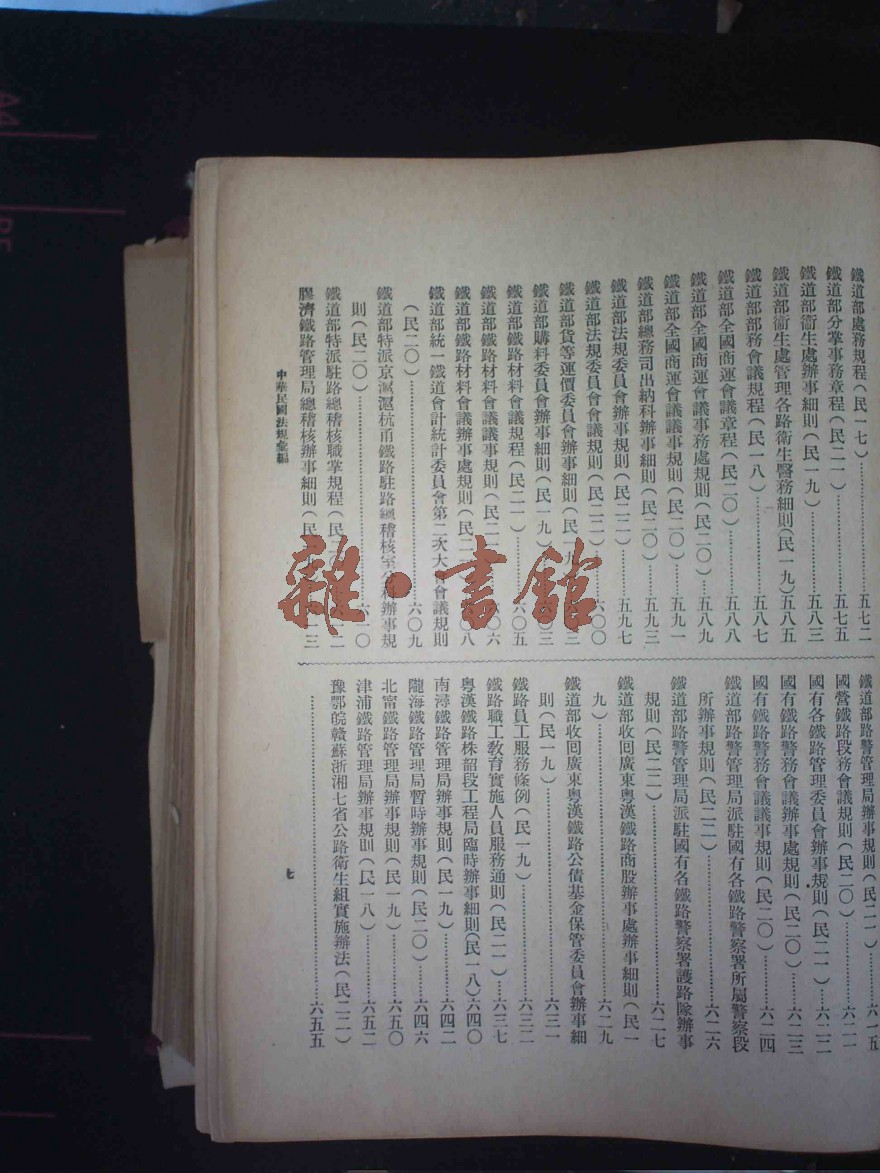 鐵道部處務規程(民一七)……五七二
鐵道部分掌事務章程(民二一)……五七五
鐵道部衞生處辦事細則(民一九)……五八三
鐵道部衞生處管理各路衞生醫務細則(民一九)五八五
鐵道部部務會議規程(民一八)……五八七
鐵道部全國商運會議章程(民二〇)……五八八
鐵道部全國商運會議事務處規則(民二〇)…五八九
鐵道部全國商運會議議事規則(民二〇)……五九一
鐵道部總務司出納科辦事細則(民二〇)……五九三
鐵道部法規委員會辦事規則(民二二)……五九七
鐵道部法規委員會會議規則(民二二)……六〇〇
鐵道部貨等運價委員會辦事細則(民一九
鐵道部購料委員會辦事細則(民一九)
鐵道部鐵路材料會議規程(民二一)……六〇五
鐵道部鐵路材料會議議事規則(民二一
鐵道部鐵路材料會議辦事處規則(民二
鐵道部統一鐵道會計統計委員會第二次大會會議規則
(民二〇)……六〇九
鐵道部特派京滬滬杭甬鐵路駐路總稽核室分科辦事規
則(民二〇)……六一〇
鐵道部特派駐路總稽核職掌規程(民二
膠濟鐵路管理局總稽核辦事細則(民
鐵道部路警管理局辦事規則(民二一)……六一五
國營鐵路段務會議規則(民二〇)……六二一
國有各鐵路管理委員會辦事規則(民二一)……六二二
國有鐵路警務會議辦事處規則(民二〇)……六二三
國有鐵路警務會議議事規則(民二〇)……六二四
鐵道部路警管理局派駐國有各鐵路警察署所屬警察段
所辦事規則(民二二)……六二六
鐵道部路警管理局派駐國有各鐵路警察署護路隊辦事
規則(民二二)……六二七
鐵道部收回廣東粵漢鐵路商股辦事處辦事細則(民一
九)……六二九
鐵道部收回廣東粵漢鐵路公債基金保管委員會辦事細
則(民一九)……六三一
鐵路員工服務條例(民一九)……六三二
鐵路職工教育實施人員服務通則(民二一)…六三七
粵漢鐵路株韶段工程局臨時辦事細則(民一八)六四〇
南潯鐵路管理局辦事規則(民一九)……六四二
隴海鐵路管理局暫時辦事規則(民二〇)……六四六
北甯鐵路管理局辦事規則(民一九)……六五〇
津浦鐵路管理局辦事規則(民一八)……六五二
豫鄂皖贛蘇浙湘七省公路衞生組實施辦法(民二二)
……六五五
中華民國法規彙編
七
雜·書館